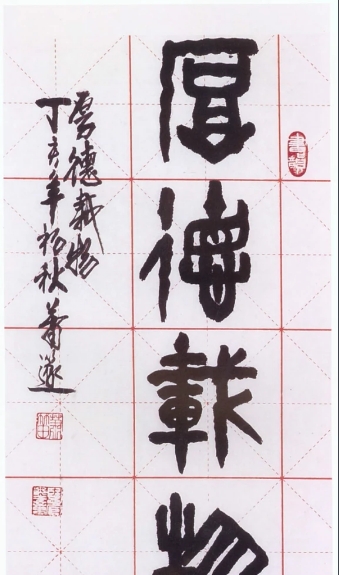 厚德载物
厚德载物
丁亥年初秋